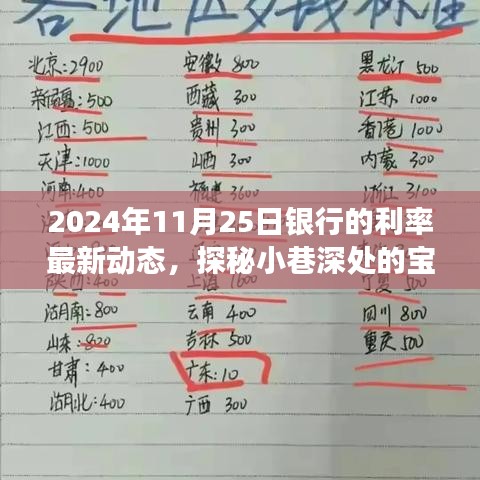 北京:2900 安徽 800 黑龙江 500
新疆:500 西藏 300 江苏 1000
江西:500 贵州 300 香港 1000
天津:1000 山西 300 内蒙 300
河南:400 福建 3600 浙江 3100
2024年11月25日银行的利率
最新动态，探秘小巷深处的宝
湖南:800 云南 400 四川 800
山东:800 吉林 500 重庆 500
甘肃:400 广东:10
湖北:400 广西 300